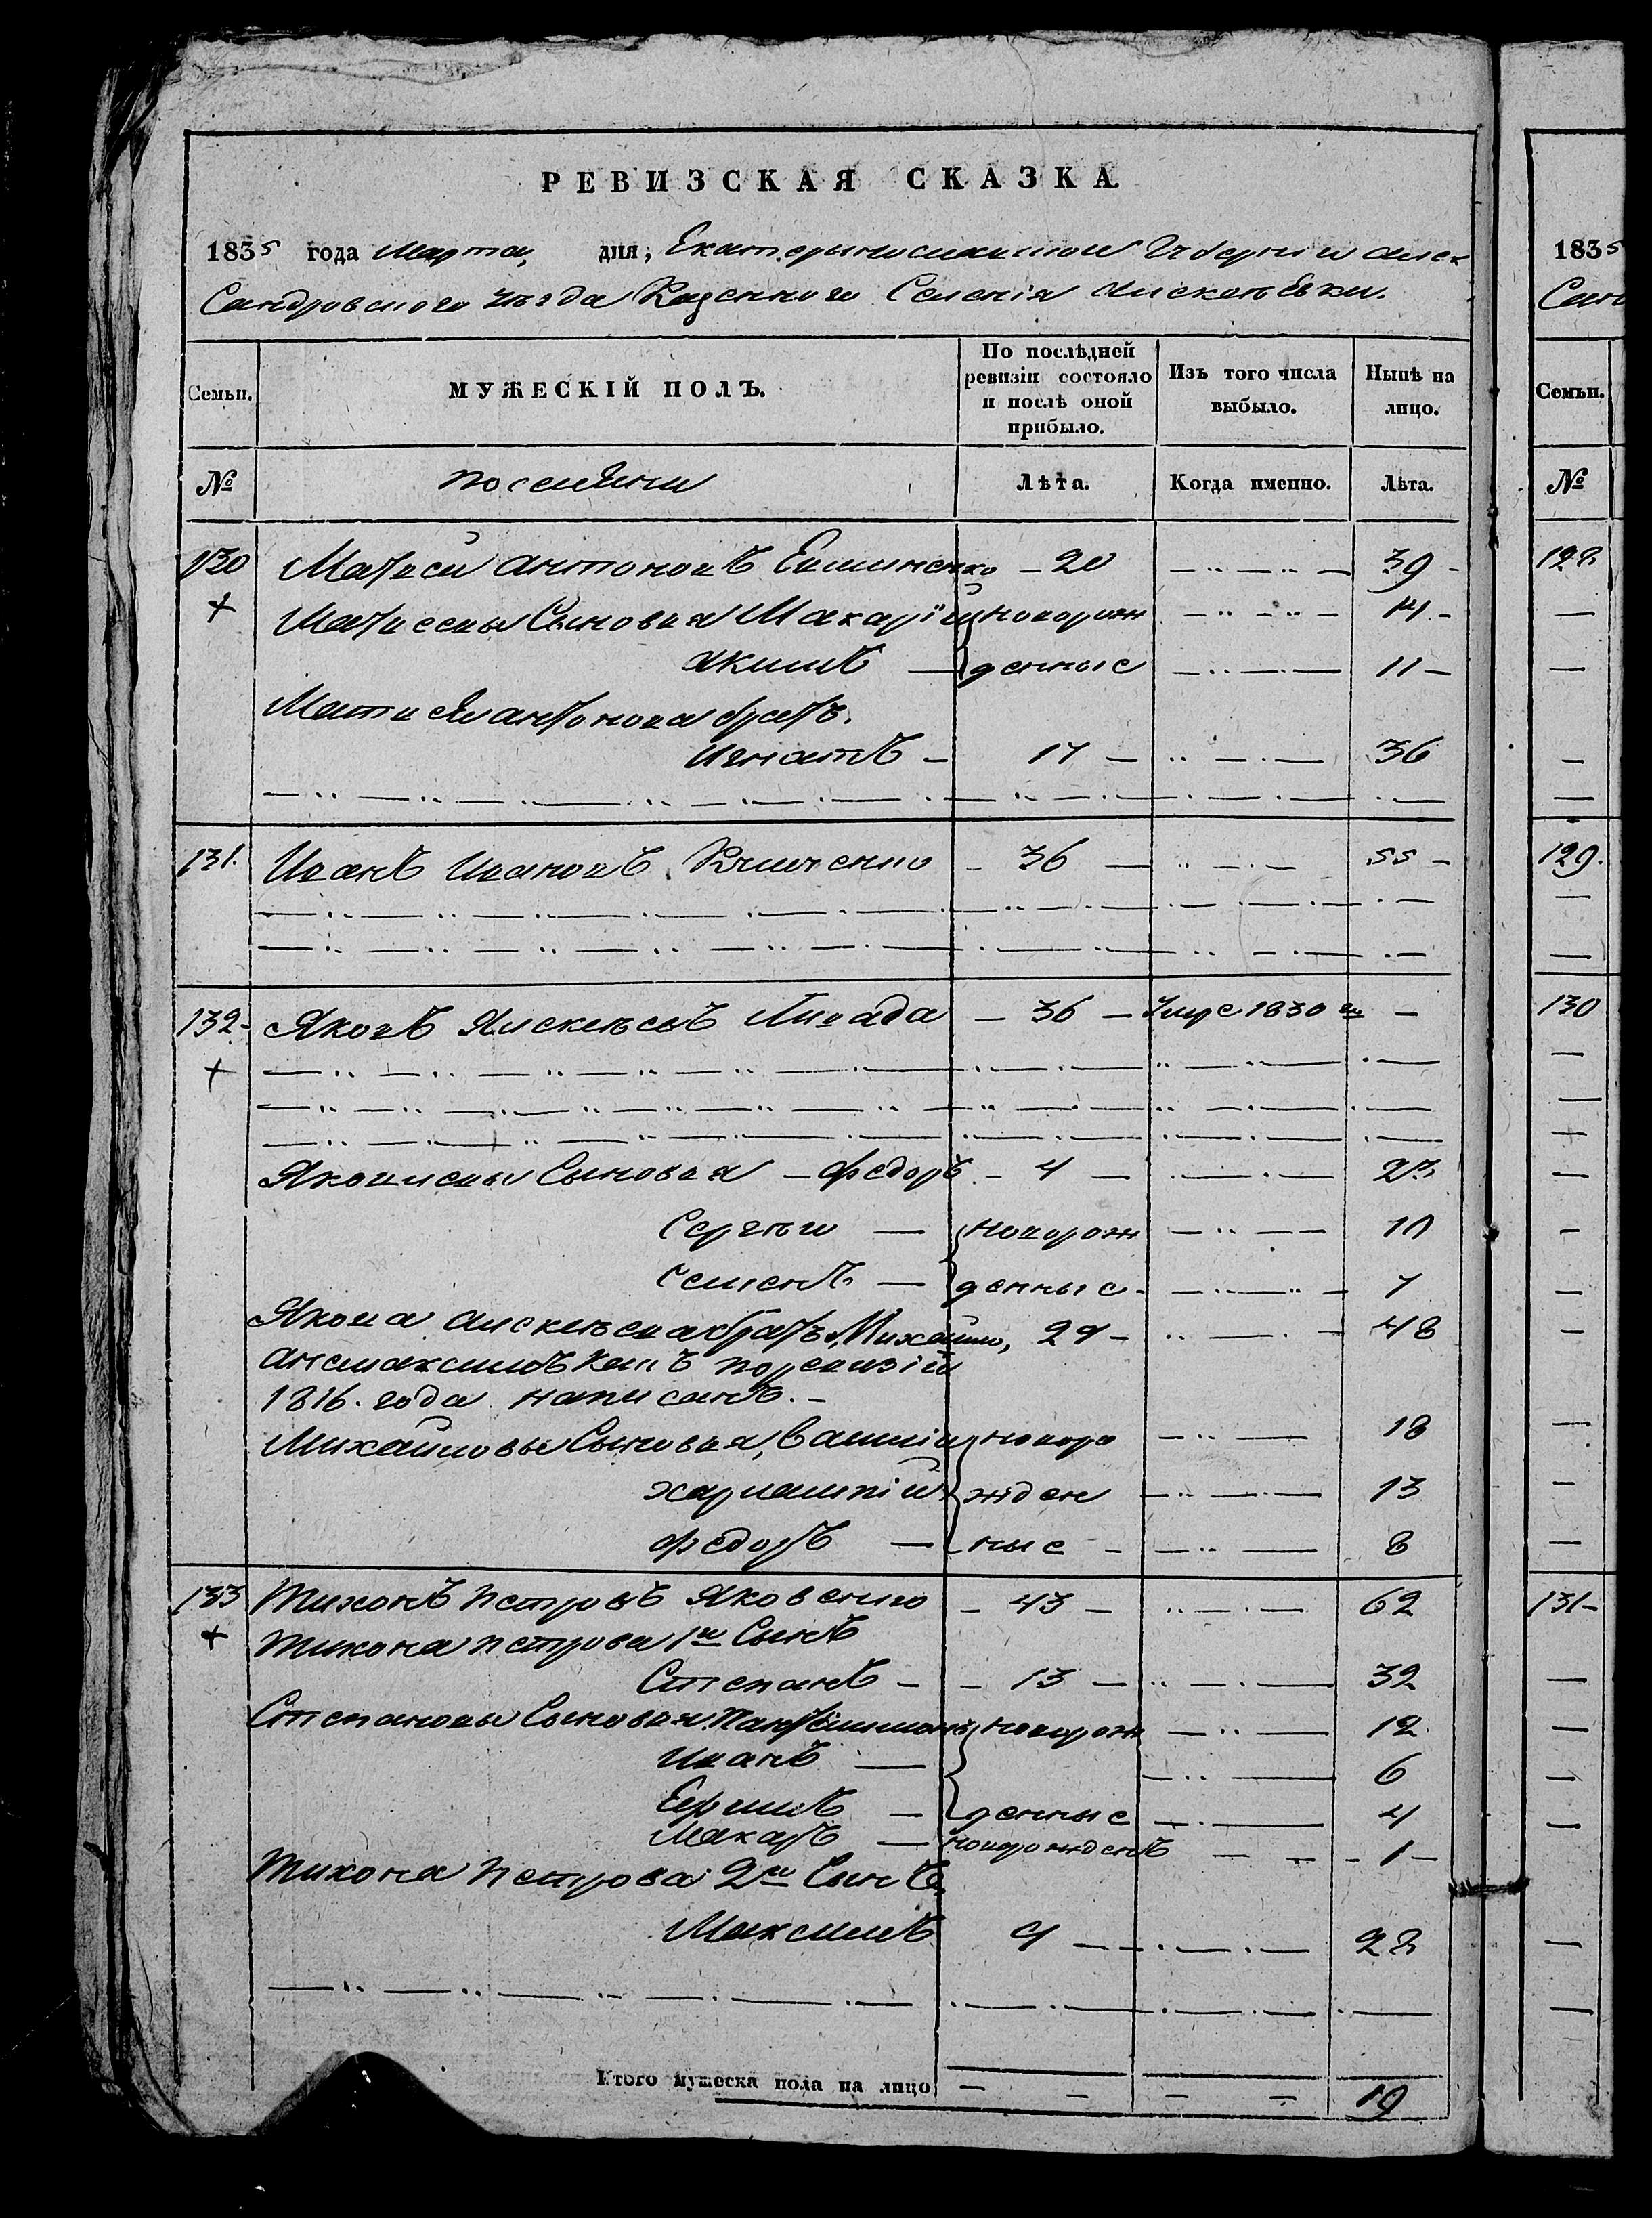 РЕВИЗСКАЯ СКАЗКА.
1835 года Марта, дня, Екатеринославской Губерніи Алек
Сандровского уѣзда Казенного Селенія Алексѣевки.
Семьи. МУЖЕСКІЙ ПОЛЪ. По послѣдней ревизіи состояло и послѣ оной прибыло. Изъ того числа выбыло. Нынѣ на лицо.
№ поселяни Лѣта. Когда именно. Лѣта.
130 Матвей Антоновъ - 20 39 -
+ Матвеевы Сыновья Макарій новорож 14 -
Акимъ — денные 11 -
Матвея Антонова братъ.
Игнатъ - 17 - 36
131. Иванъ Ивановъ - 36 — 55 -
132 - Яковъ Алексѣевъ - 36 - Умре 1830 го -
+
Яковлевы Сыновья - Федоръ - 4 — 23
Сергѣй — новорож 10
Семенъ — денные - 7
Якова Алексѣева братъ, Михайло, 29 - 48
Анемаксимъ какъ поревизіи
1816. года написанъ. -
Михайловы Сыновья, Василій новоро 18
Харлампій жден 13
Федоръ — ные - 8
133 Тихонъ Петровъ Яковенко - 43 - 62
+ Тихона Петрова 1й Сынъ
Степанъ - - 13 — 32
Степановы Сыновья Пантелимонъ новорож 12
Иванъ — 6
Ефимъ — денные 4
Макаръ — новорожденъ - 1 -
Тихона Петрова 2й Сынъ,
Максимъ 9 — 28
Итого мужеска пола на лицо — - — - 19
1835
Сан
Семьи.
№
128
129.
130
131 -